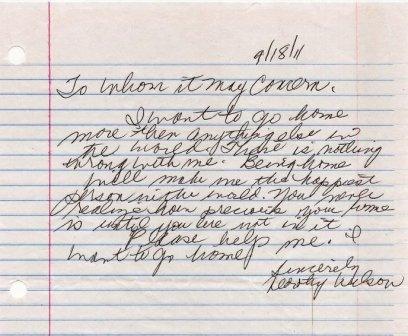 9/18/11
To Whom it May Concern.
I want to go home
more then anything else in
the world. There is nothing
wrong with me. Being home
will make me the happiest
person in the world. You never
realize how precious your home
is until you are not in it
Please help me. I
want to go home
Sincerely
Wilson